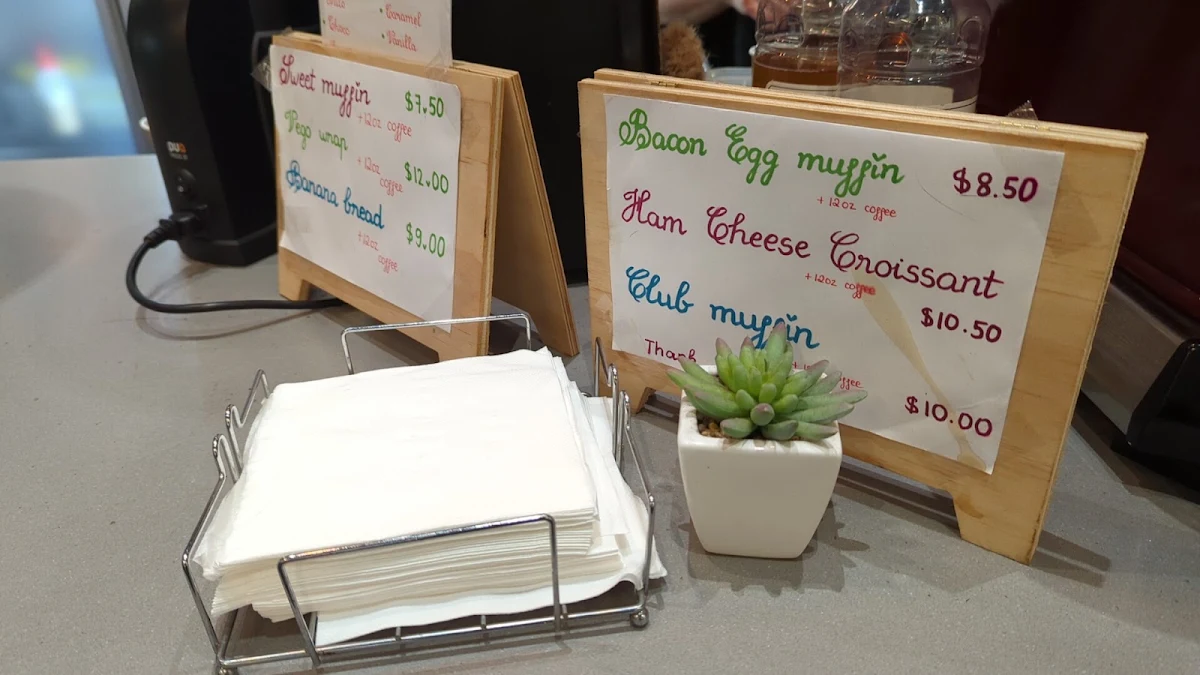 • Caramel
• Choco
• Vanilla
Sweet muffin $7.50
+12oz coffee
Vego wrap
+12oz coffee $12.00
Banana bread
+12oz coffee $9.00
Bacon Egg muffin $8.50
+12oz coffee
Ham Cheese Croissant
+12oz coffee
$10.50
Club muffin
Thank coffee
$10.00